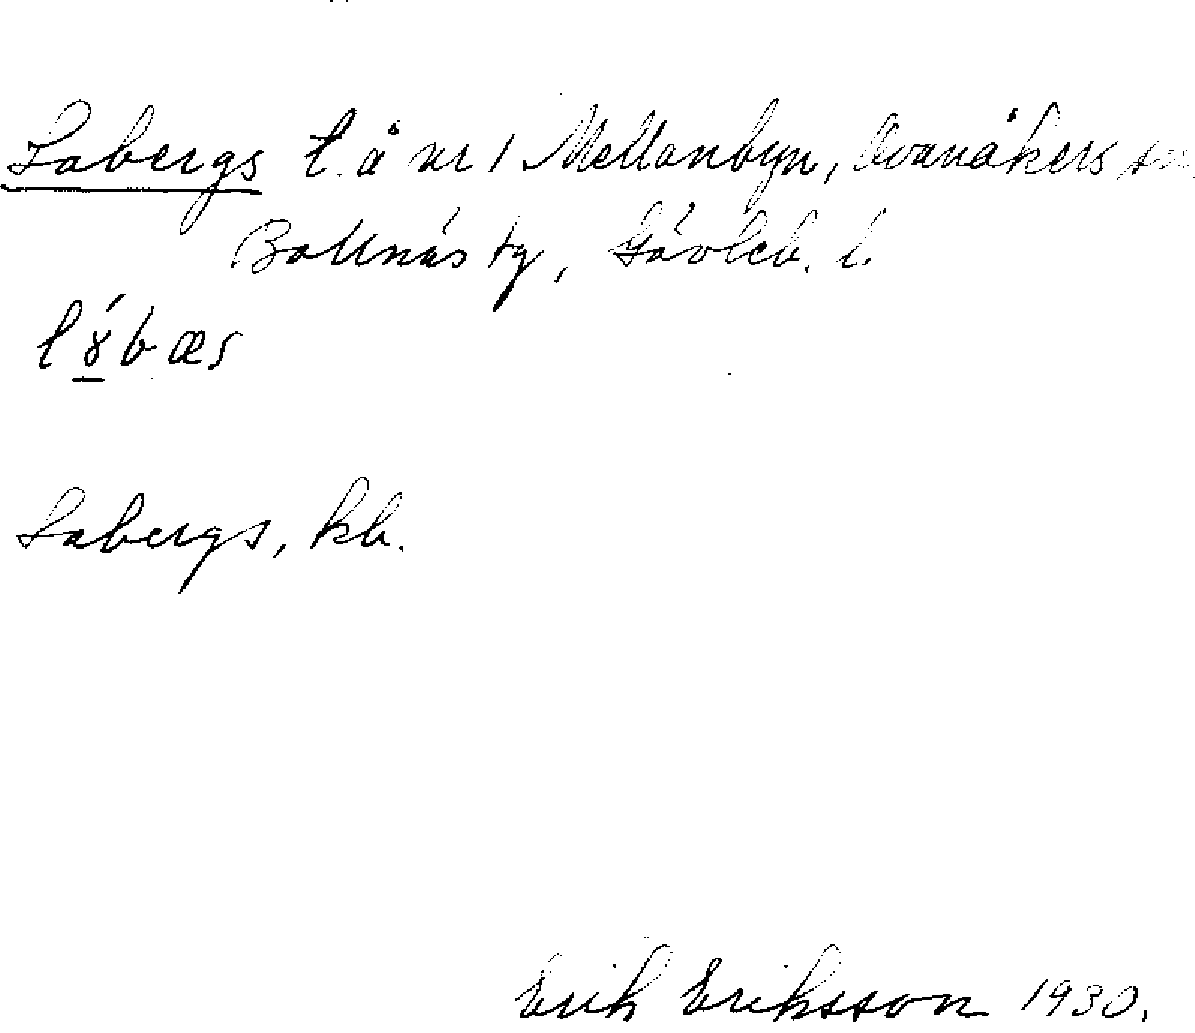 Labergs l. å nr 1 Mellanbyn, Ovanåkers sn,
Bollnäs tg, Gävleb. l.
Labergs, kb.
Erik Eriksson 1930.